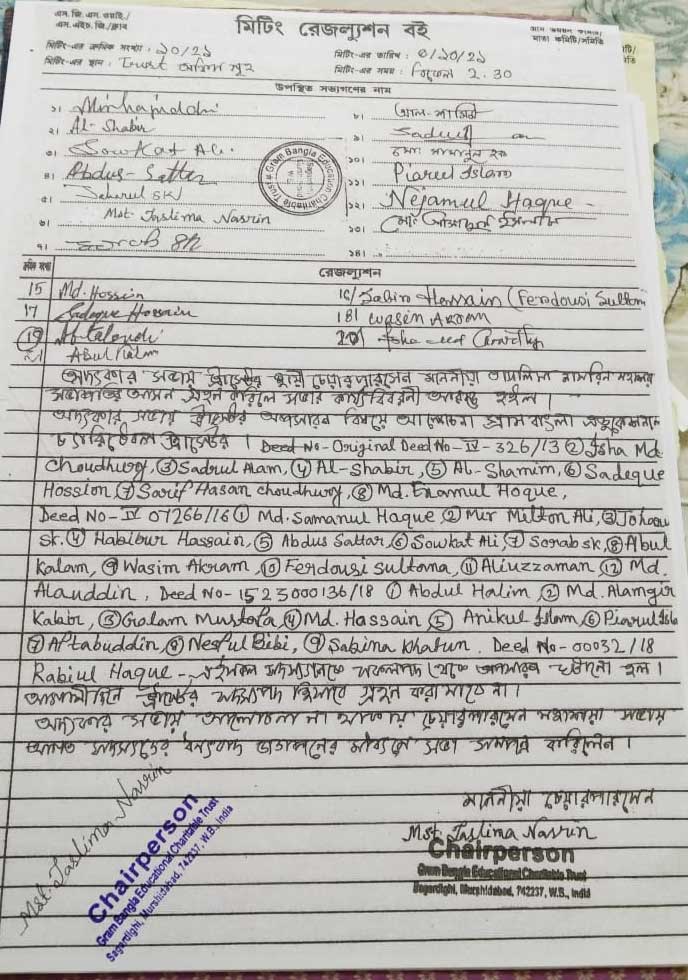 এস. জি. এস. ওয়াই./
এস. এইচ. জি./ক্লাব
মিটিং রেজল্যুশন বই
মাতা কমিটি/সমিতি
মিটিং-এর ক্রমিক সংখ্যা : ১০/২১
মিটিং-এর তারিখ : ৩/১০/২১
মিটিং-এর স্থান : Trust অফিস গৃহ
মিটিং-এর সময় : বিকেল 2.30
উপস্থিত সভ্যগণের নাম
১।
২। Al-Shabir
৩। Sowkat Ali.
৪। Abdus-Sattar
৫। Jaharul SK
৬। Mst. Taslima Nasrin
৭। Sorab SK
৮।
৯।
১০।
১১। Piarul Islam
১২। Nejamul Haque
১৩।
১৪।
Gram Bangla Education Charitable Trust
ক্রমিক সংখ্যা
রেজল্যুশন
15 Md. Hossein
16/ Sabir Hossain (Ferdousi Sultana
17 Sadeque Hossain
18/ Wasim Akram
19
20/ Isha Choudhury
21 Abul Kalam
অদ্যকার সভায় ট্রাস্টের স্থায়ী চেয়ারপারসেন মাননীয়া তাসলিমা নাসরিন মহাশয়া
সভাপতির আসন গ্রহন করিলে সভার কার্য্যবিবরনী আরম্ভ হইল।
অদ্যকার সভায় ট্রাস্টের অপসারন বিষয়ে আলোচনা গ্রাম বাংলা এডুকেশানাল
চ্যারিটেবল ট্রাস্টের। Deed No-Original Deed No-IV-326/13 ② Isha Md.
Choudhury, ③ Sadrul Alam, ④ Al-Shabir, ⑤ Al-Shamim, ⑥ Sadeque
Hossion, ⑦ Sarif Hasan choudhury, ⑧ Md. Enamul Hoque,
Deed No-IV 07266/16 ① Md. Samanul Haque, ② Mir Milton Ali, ③ Joharul
Sk. ④ Habibur Hassain, ⑤ Abdus Sattar, ⑥ Sowkat Ali, ⑦ Sorab sk, ⑧ Abul
Kalam, ⑨ Wasim Akram, ⑩ Ferdousi Sultana, ⑪ Aliuzzaman, ⑫ Md.
Alauddin, Deed No-1523000136/18 ① Abdul Halim, ② Md. Alamgir
Kabir, ③ Golam Mustafa, ④ Md. Hassain, ⑤ Anikul Islam, ⑥ Piarul Isla
⑦ Aftabuddin, ⑧ Nesful Bibi, ⑨ Sabina Khatun. Deed No-00032/18
Rabiul Haque - এইসকল সদস্যগনকে সকলপদ থেকে অপসারন ঘটানো হল।
আগামীদিনে ট্রাস্টের সদস্যপদ হিসাবে গ্রহন করা যাবে না।
অদ্যকার সভায় আলোচনা না থাকায় চেয়ারপারসেন মহাশয়া সভায়
আগত সদস্যদের ধন্যবাদ জ্ঞাপনের মাধ্যমে সভা সমাপ্ত করিলেন।
মাননীয়া চেয়ারপারসেন
Mst. Taslima Nasrin
Chairperson
Gram Bangla Educational Charitable Trust
Sagardighi, Murshidabad, 742237, W.B., India
Mst. Taslima Nasrin
Chairperson
Gram Bangla Educational Charitable Trust
Sagardighi, Murshidabad, 742237, W.B., India